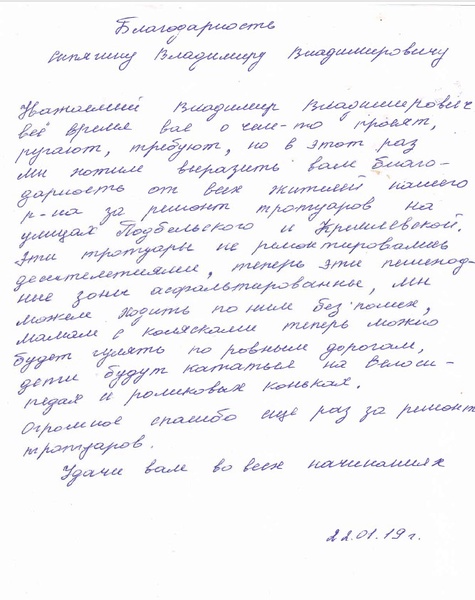 Благодарность
Сипягину Владимиру Владимировичу
Уважаемый Владимир Владимирович
всё время вас о чем-то просят,
ругают, требуют, но в этот раз
мы хотим выразить вам благо-
дарность от всех жителей нашего
р-на за ремонт тротуаров на
улицах Подбельского и Кремлевской.
Эти тротуары не ремонтировались
десятилетиями, теперь эти пешеход-
ные зоны асфальтированные, мы
можем ходить по ним без помех,
мамам с колясками теперь можно
будет гулять по ровным дорогам,
дети будут кататься на велоси-
педах и роликовых коньках.
Огромное спасибо еще раз за ремонт
тротуаров.
Удачи вам во всех начинаниях
22.01.19 г.